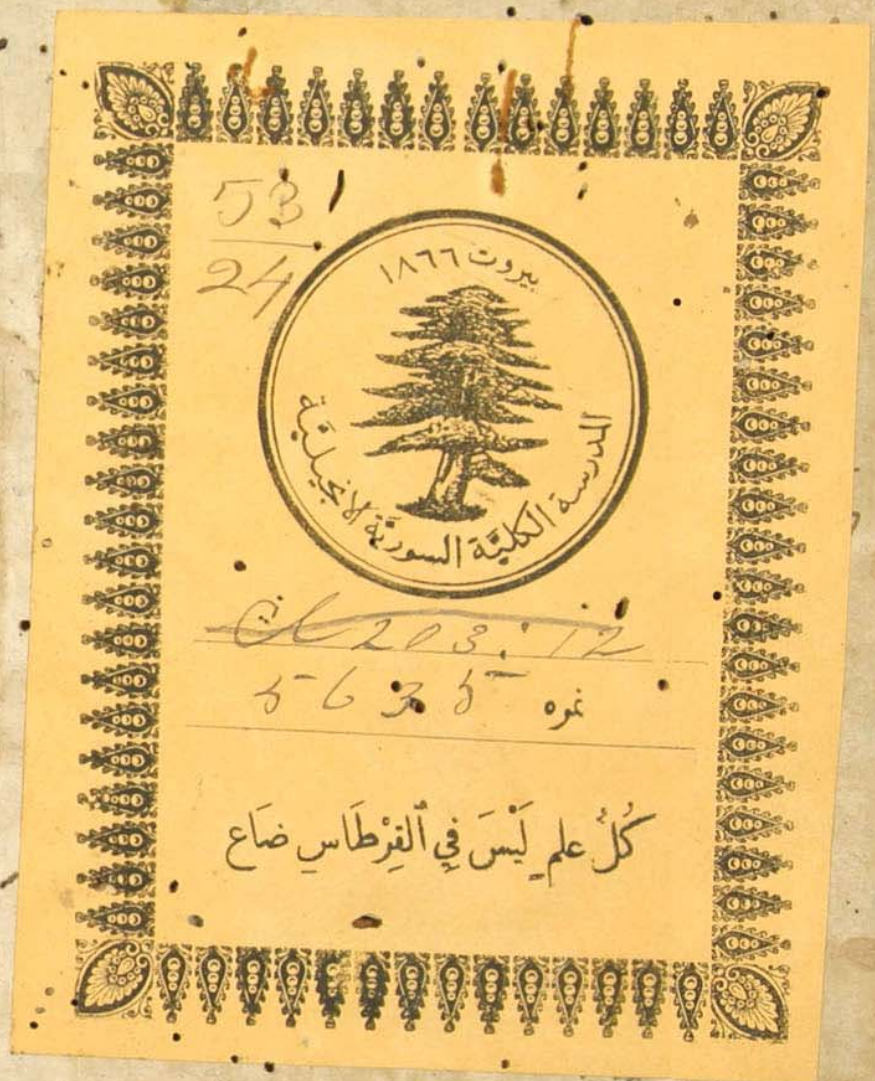 53
24
بيروت ١٨٦٦
المدرسة الكليّة السوريّة الانجيليّة
203:12
نموه 5635
كُلُّ علمٍ لَيْسَ فِي ٱلقِرْطَاسِ ضَاع